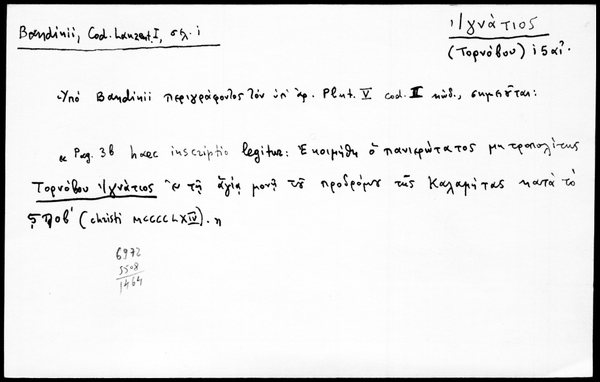 Bandinii, Cod. Laurent. I, σελ. 1
Ἰγνάτιος
(Τορνόβου) 15 αἰ.
Ὑπὸ Bandinii περιγράφοντος τὸν ὑπ' ἀρ. Plut. V cod. II κώδ., σημειοῦται:
« Pag. 3b haec inscriptio legitur: Ἐκοιμήθη ὁ πανιερώτατος μητροπολίτης
Τορνόβου Ἰγνάτιος ἐν τῇ ἁγίᾳ μονῇ τοῦ προδρόμου τῆς Καλαμίτας κατὰ τὸ
ϛϡοβ' (christi MCCCCLXIV). »
6972
5508
1464